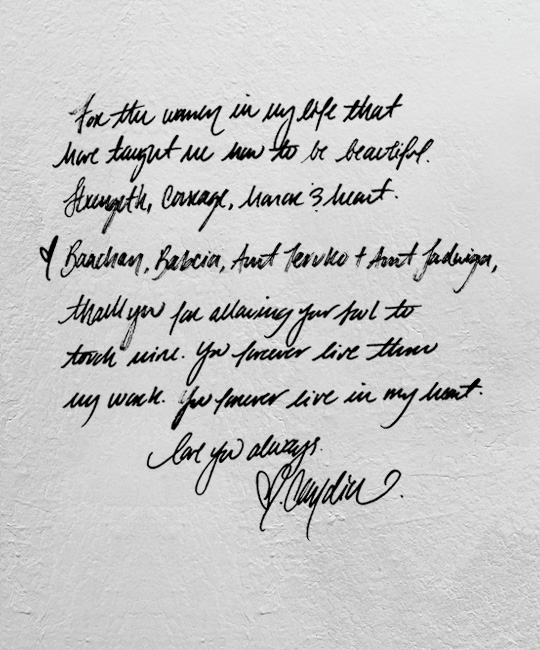 For the women in my life that
have taught me how to be beautiful.
Strength, Courage, Honor & heart.
Baachan, Babcia, Aunt Teruko + Aunt Jadwiga,
thank you for allowing your soul to
touch mine. You forever live threw
my work. You forever live in my heart.
love you always.